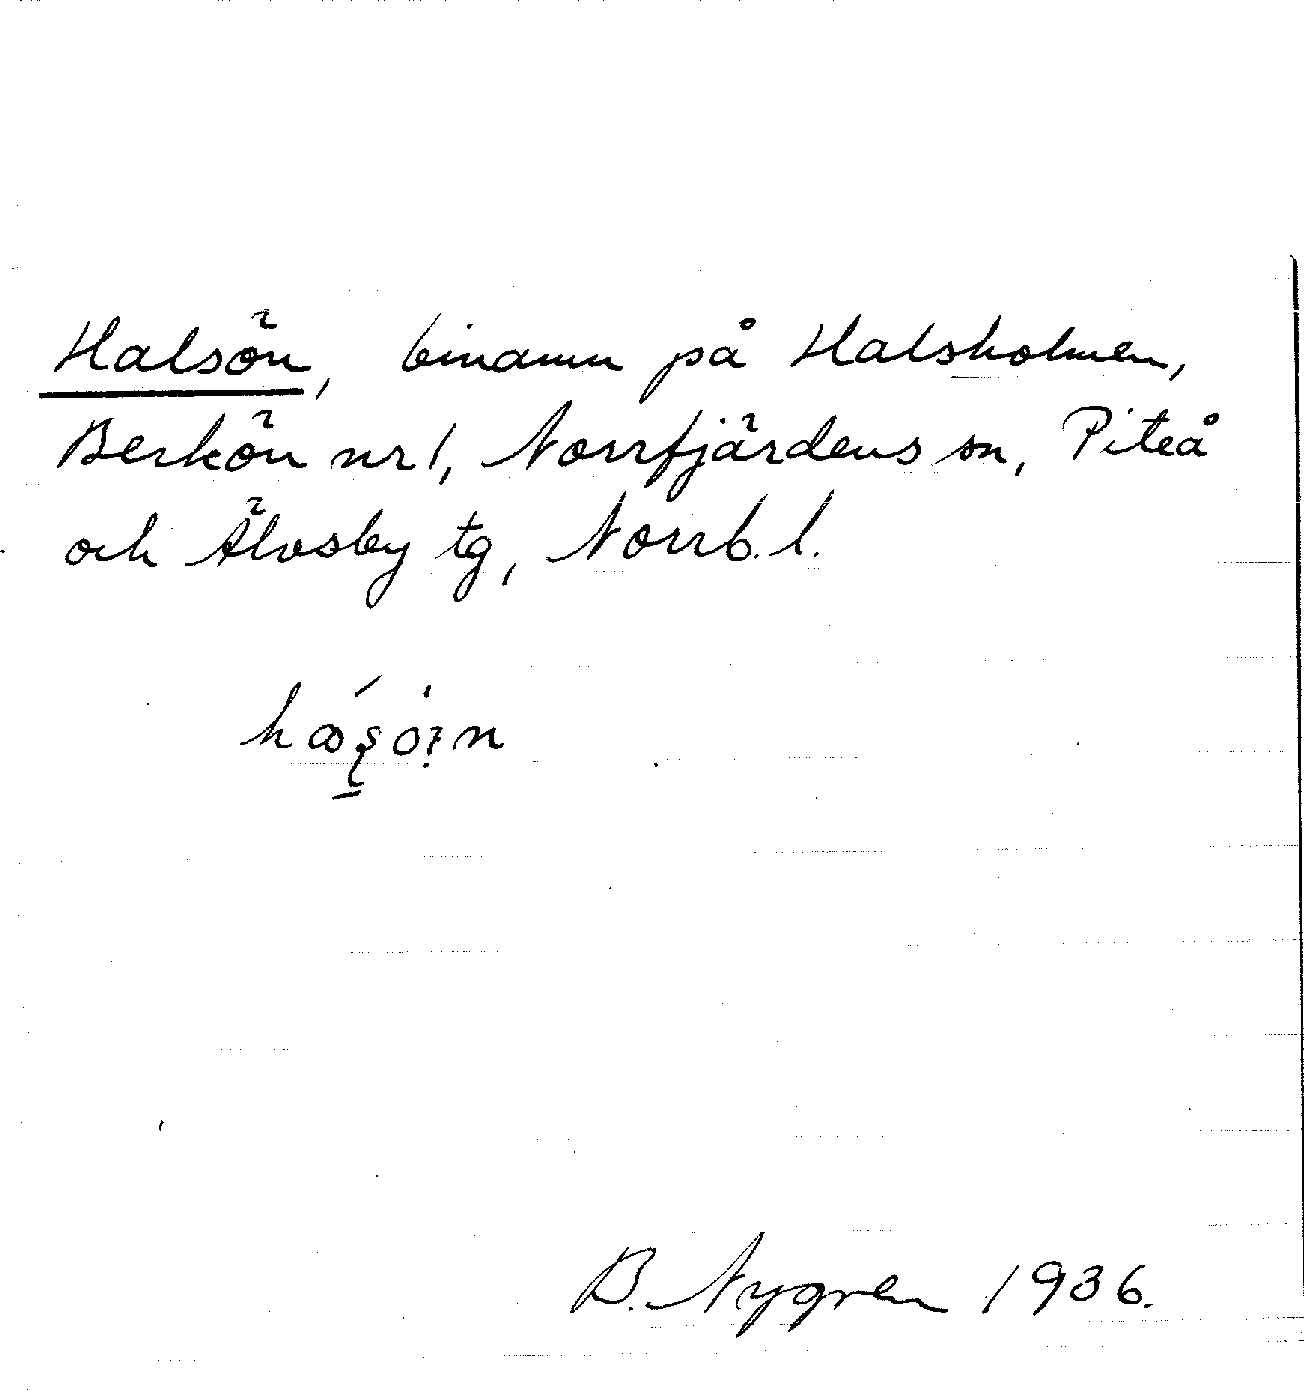 Halsön, binamn på Halsholmen,
Berkön nr 1, Norrfjärdens sn, Piteå
och Älvsby tg, Norrb. l.
B. Nygren 1936.